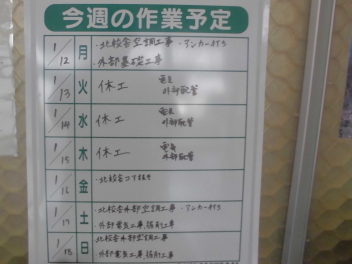 今週の作業予定
1/12 月 ・北校舎空調工事 ・アンカー打ち
・外部基礎工事
1/13 火 休工 電気
外部配管
1/14 水 休工 電気
外部配管
1/15 木 休工 電気
外部配管
1/16 金 ・北校舎コア抜き
1/17 土 ・北校舎外部空調工事 ・アンカー打ち
・外部電気工事、掘削工事
1/18 日 ・北校舎外部空調工事
・外部電気工事、掘削工事